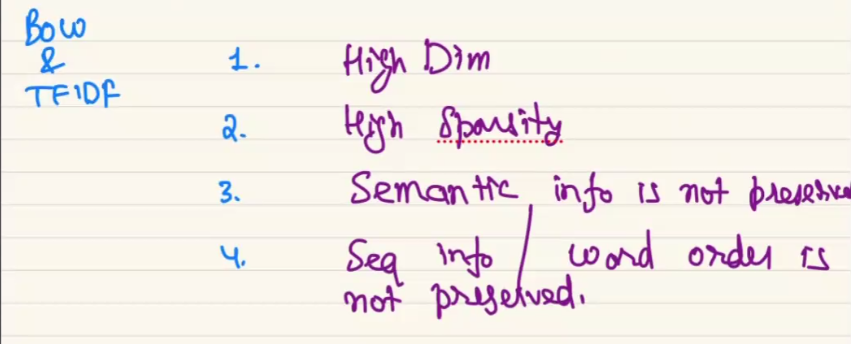 BOW
&
TFIDF
1. High Dim
2. High Sparsity
3. Semantic info is not preserved
4. Seq info / word order is
not preserved.